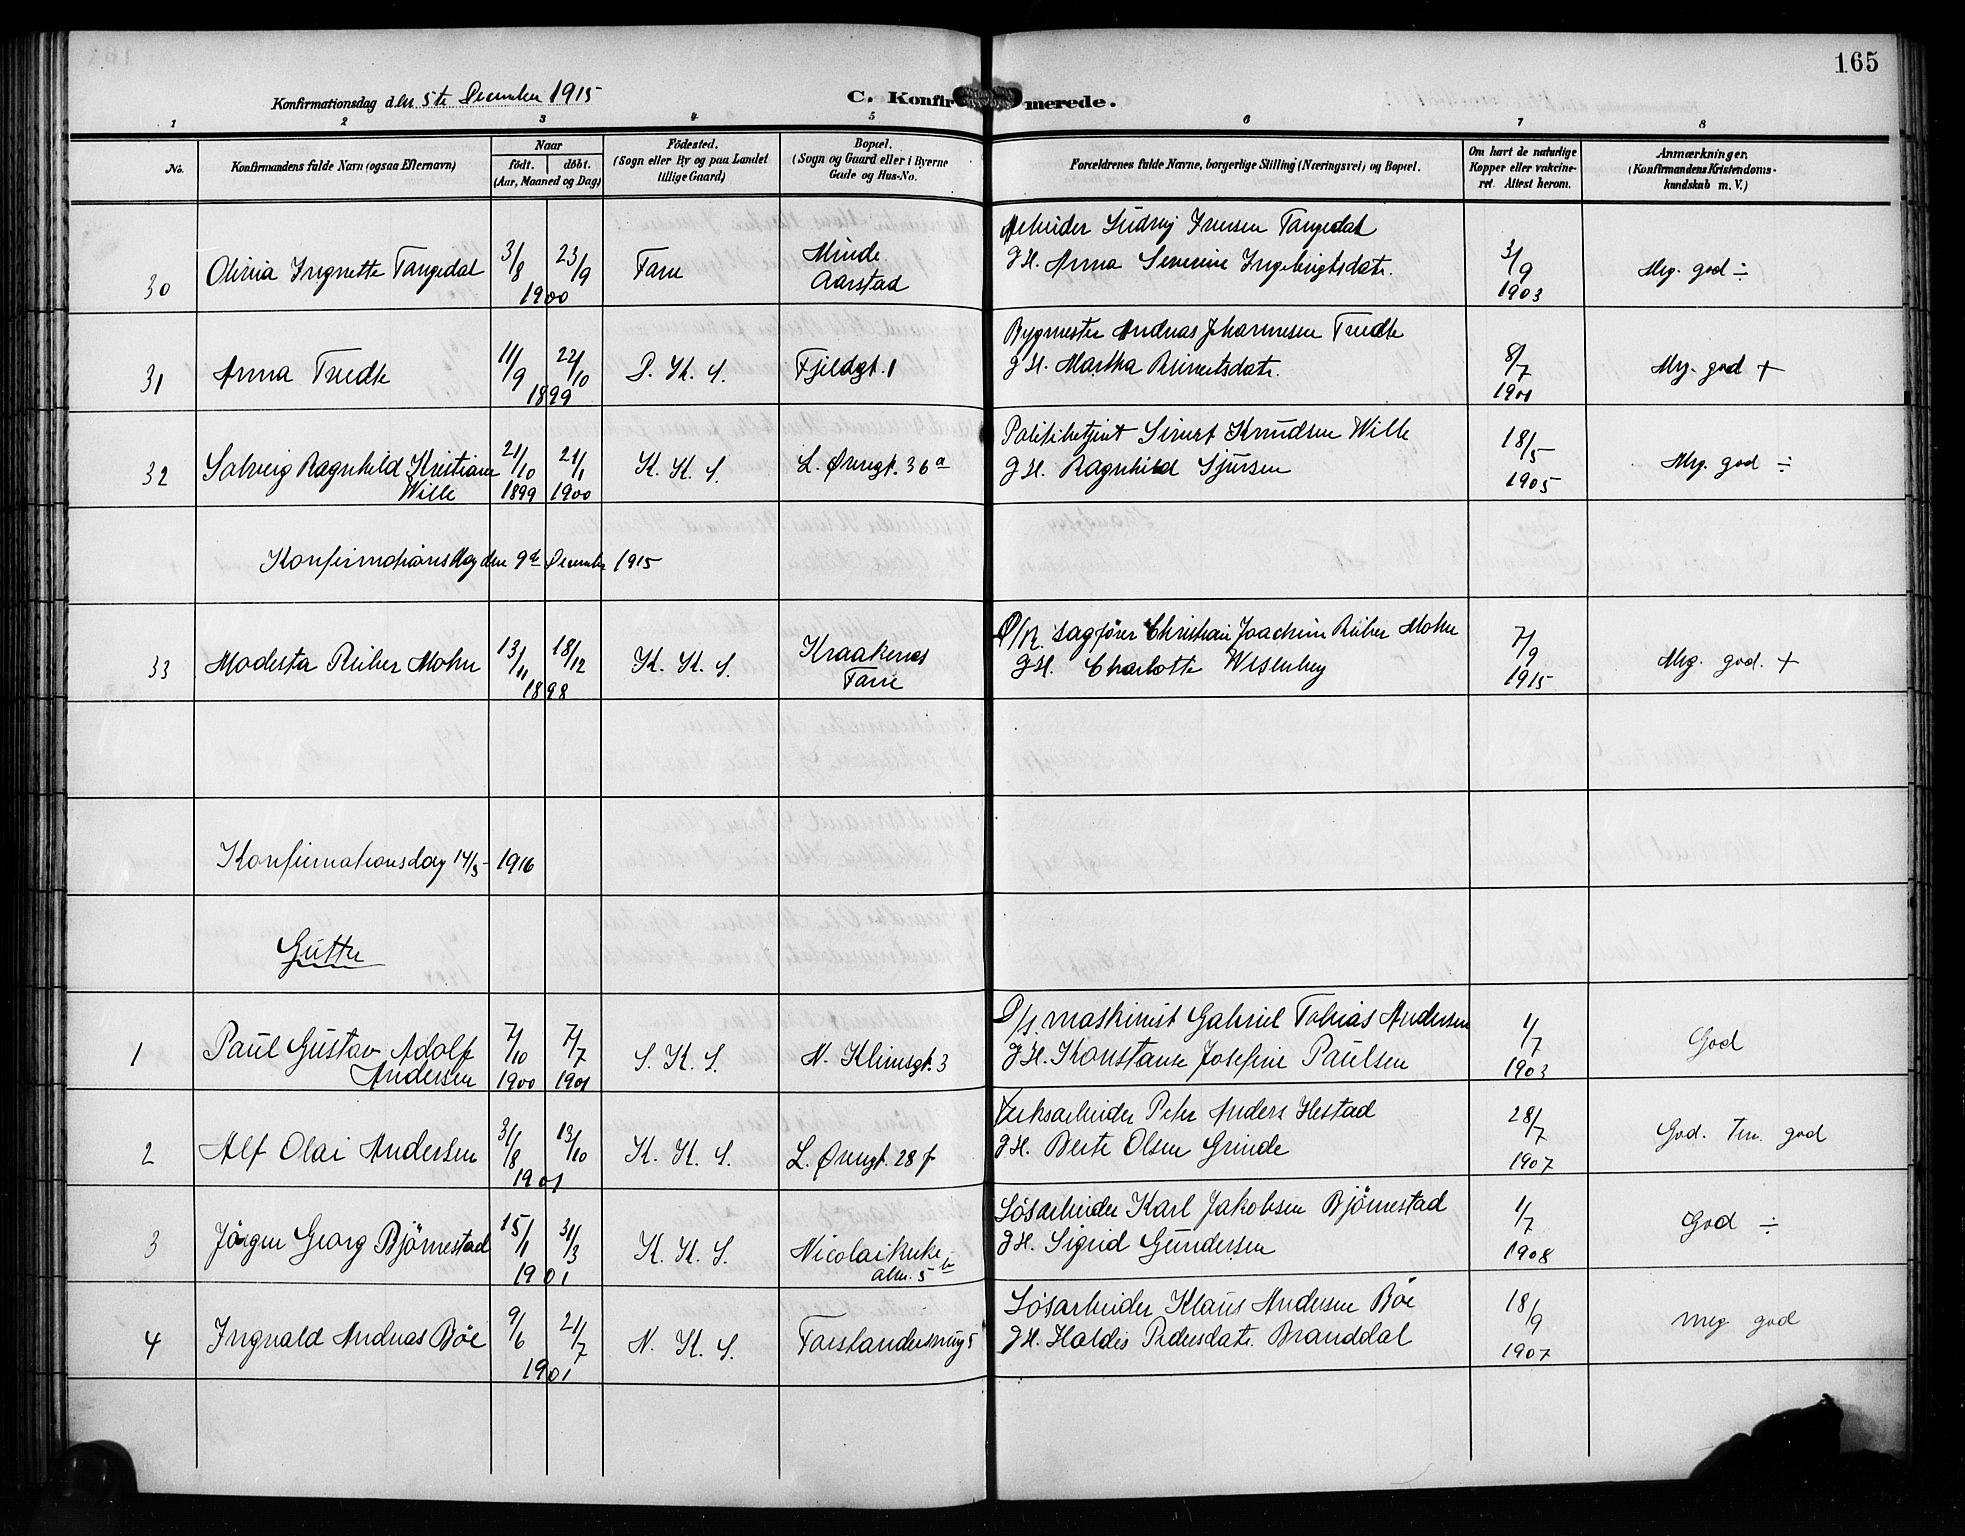 165
Konfirmationsdag den 5te December 1915
C. Konfirmerede.
1 2 3 4 5 6 7 8
No.
Konfirmandens fulde Navn (ogsaa Efternavn)
Naar
født. døbt.
(Aar, Maaned og Dag)
Fødested.
(Sogn eller By og paa Landet
tillige Gaard)
Bopæl.
(Sogn og Gaard eller i Byerne
Gade og Hus-No.
Forældrenes fulde Navne, borgerlige Stilling (Næringsvei) og Bopæl.
Om havt de naturlige
Kopper eller vakcine-
ret. Attest herom.
Anmærkninger.
(Konfirmandens Kristendoms-
kundskab m. V.)
30 Olivia Ingnette Tangedal 3/8 23/9 1900 Fane Minde Aarstad
Arbeider Ludvig Iversen Tangedal
g H. Anna Severine Ingebrigtsdatr. 3/9 1903 Mg. god ÷
31 Anna Tredte 11/9 22/10 1899 D. K. S. Fjeldgt. 1
Bygmester Andreas Johannesen Tredte
g H. Martha Reinertsdatr. 8/7 1901 Mg. god +
32 Solveig Ragnhild Kristiane Wille 21/10 1899 21/1 1900 K. K. S. L. Øvregt. 36a
Politibetjent Sivert Knudsen Wille
g H. Ragnhild Sjursen 18/5 1905 Mg. god ÷
Konfirmationsdag den 9de December 1915
33 Modesta Rieber Mohn 13/11 18/12 1898 K. K. S. Kraakenes Fane
O/R. sagfører Christian Joachim Rieber Mohn
g H. Charlotte Wesenberg 7/9 1915 Mg. god. +
Konfirmationsdag 14/5 - 1916
Gutter
1 Paul Gustav Adolf Andersen 7/10 1900 7/7 1901 S. K. S. N. Klimsgt. 3
D/s. maskinist Gabriel Tobias Andersen
g H. Konstanse Josefine Paulsen 1/7 1903 God
2 Alf Olai Andersen 31/8 13/10 1901 K. K. S. L. Øvregt. 28 f
Verksarbeider Peder Anders Hestad
g H. Berte Olsen Grinde 28/7 1907 God. Tem. god
3 Jörgen Georg Björnestad 15/1 31/3 1901 K. K. S. Nicolaikirke- alm. 5 b
Løsarbeider Karl Jakobsen Björnestad
g H. Sigrid Gundersen 1/7 1908 God ÷
4 Ingvald Andreas Böe 9/6 21/7 1901 N. K. S. Forstandersmug 5
Løsarbeider Klaus Andersen Böe
g H. Haldis Pedersdatr. Branddal 18/9 1907 Meg god